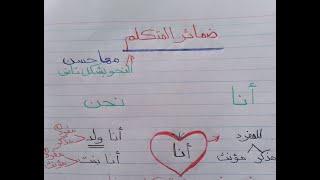 ضمائر المتكلم
مها حسن
النحو بشكل تاني
أنا
نحن
للمفرد
مذكر مؤنث
أنا
أنا ولد
أنا بنت
مفرد
مذكر
مفرد